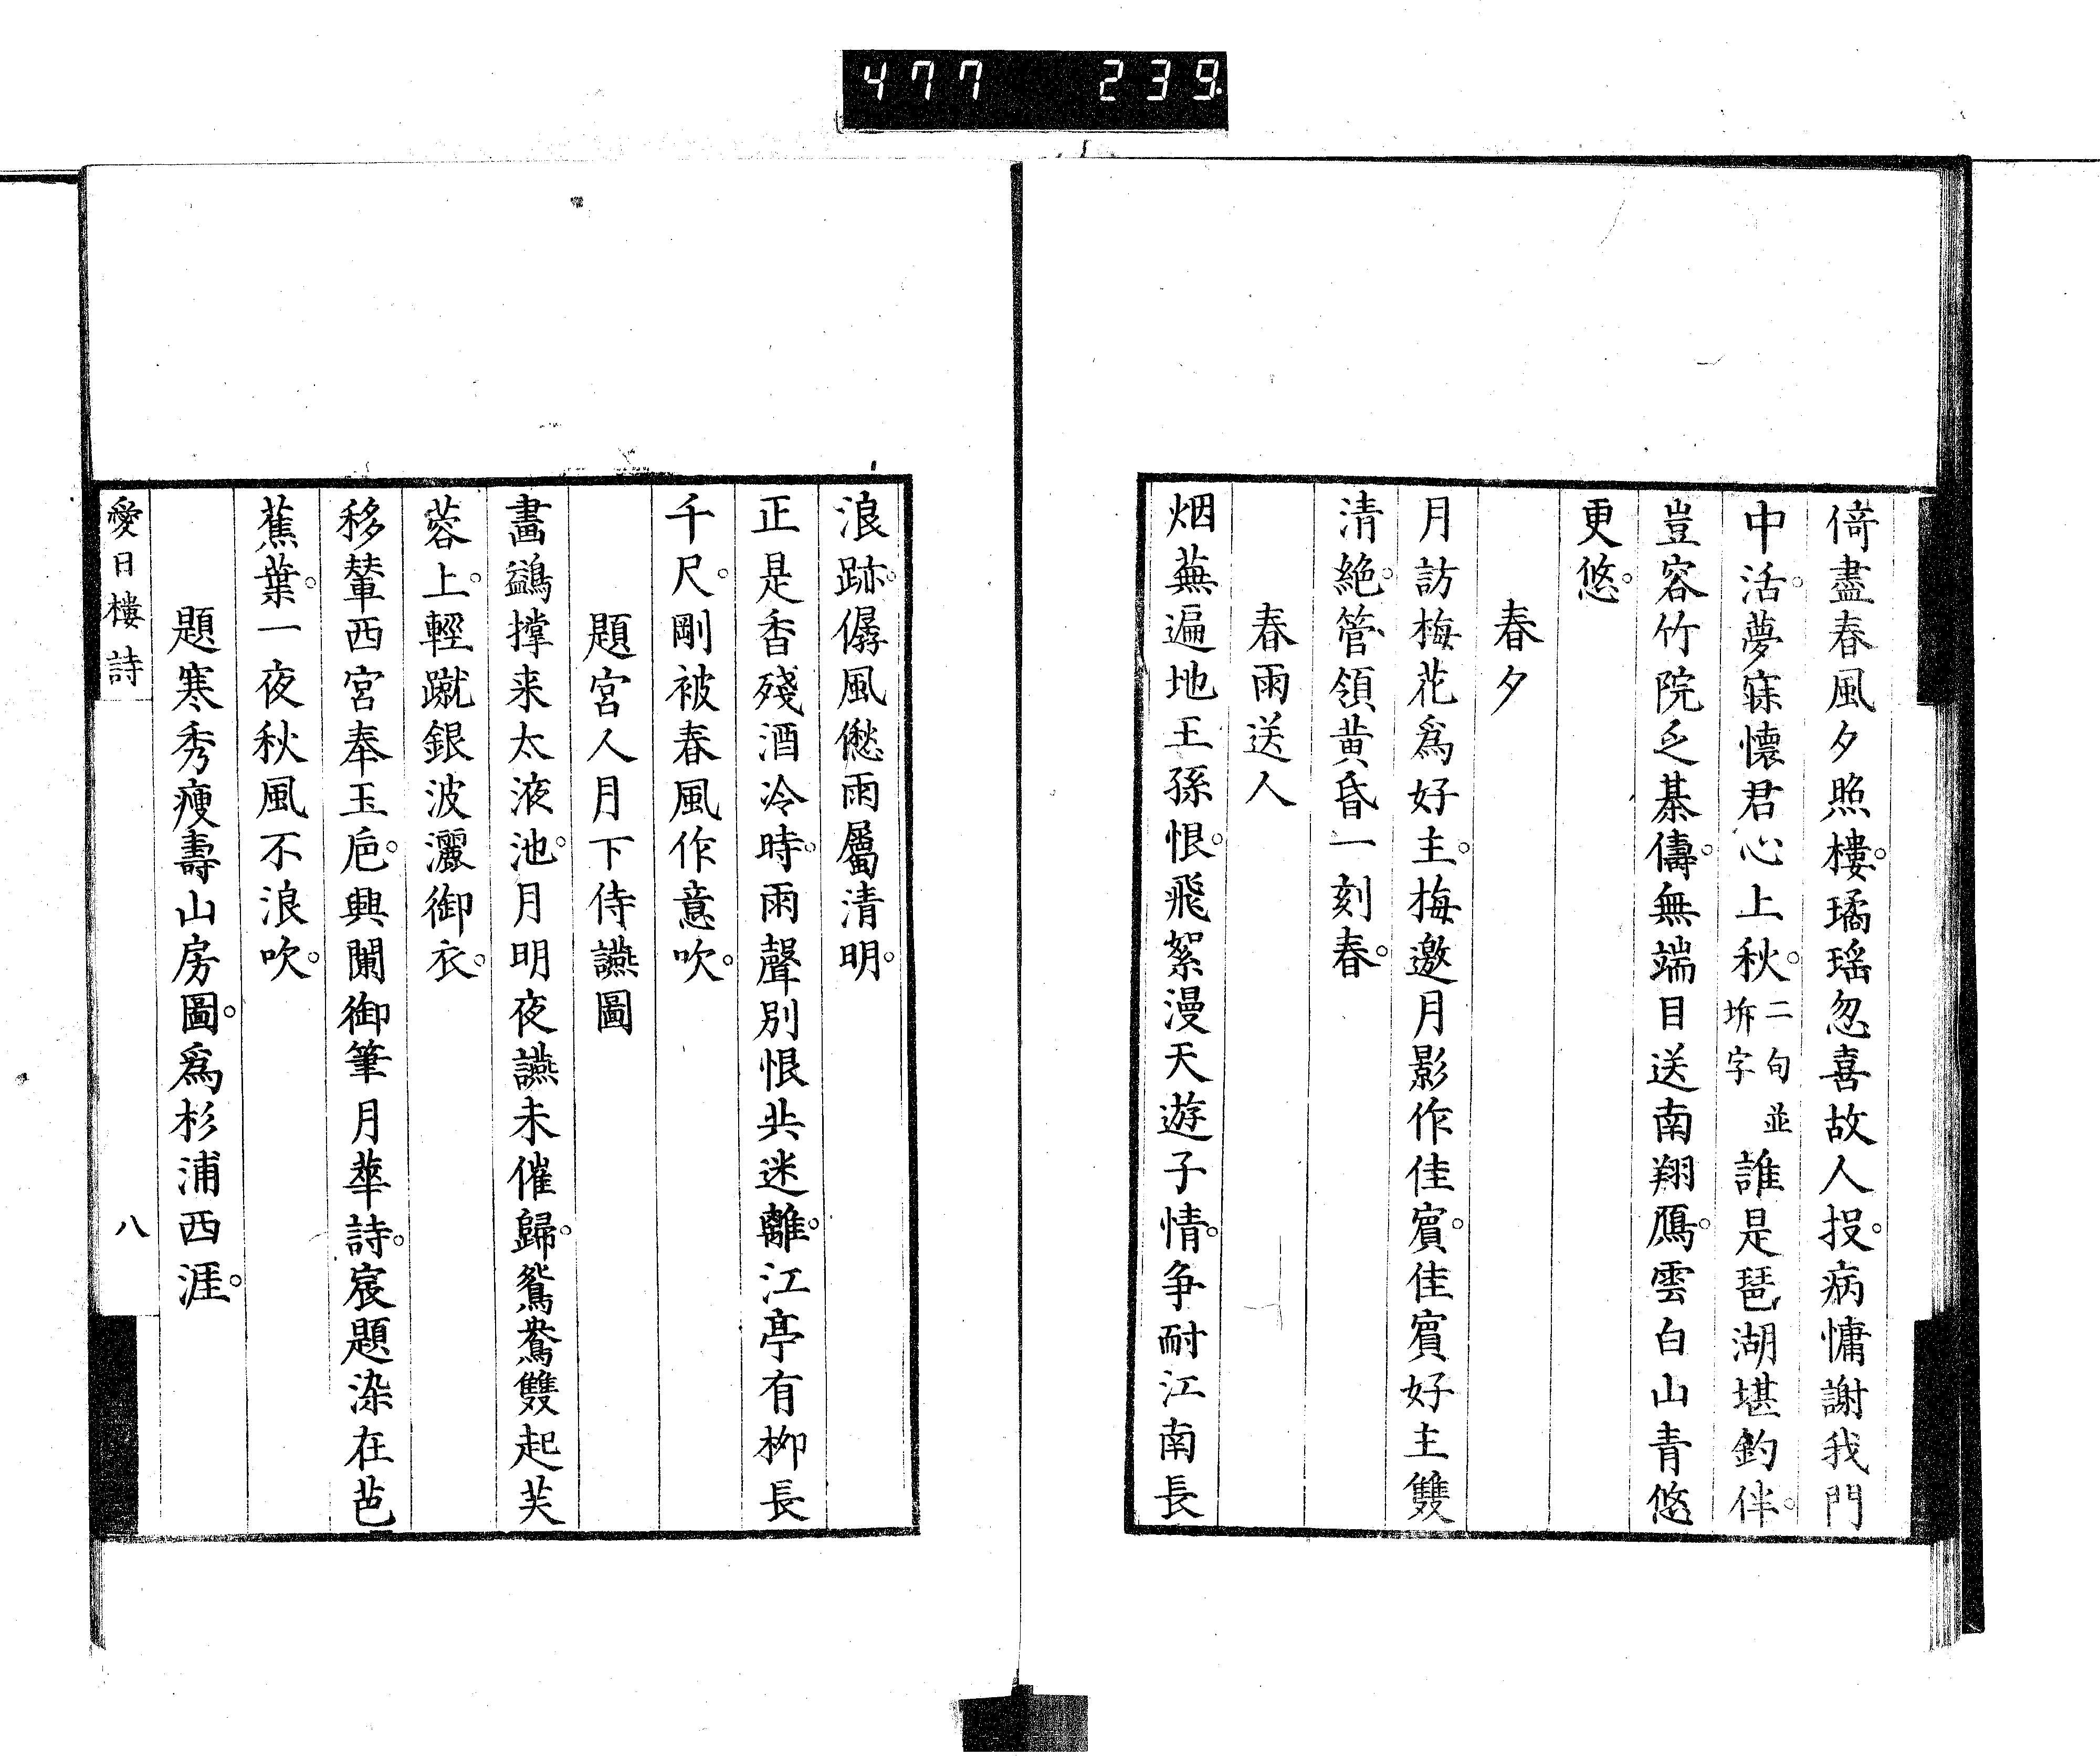 477 239
倚盡春風夕照樓。璚瑶忽喜故人投。病慵謝我門
中活。夢寐懷君心上秋。二句並坼字誰是琶湖堪釣伴。
豈容竹院乏棊儔。無端目送南翔鴈。雲白山青悠
更悠。
春夕
月訪梅花爲好主。梅邀月影作佳賓。佳賓好主雙
清絶。管領黄昏一刻春。
春雨送人
烟蕪遍地王孫恨。飛絮漫天遊子情。争耐江南長
浪跡。僝風僽雨屬清明。
正是香殘酒冷時。雨聲別恨共迷離。江亭有柳長
千尺。剛被春風作意吹。
題宮人月下侍讌圖
畵鷁撑来太液池。月明夜讌未催歸。鴛鴦雙起芙
蓉上。輕蹴銀波灑御衣。
移輦西宮奉玉巵。興闌御筆月華詩。宸題染在芭
蕉葉。一夜秋風不浪吹。
題寒秀瘦壽山房圖。爲杉浦西涯。
愛日樓詩
八